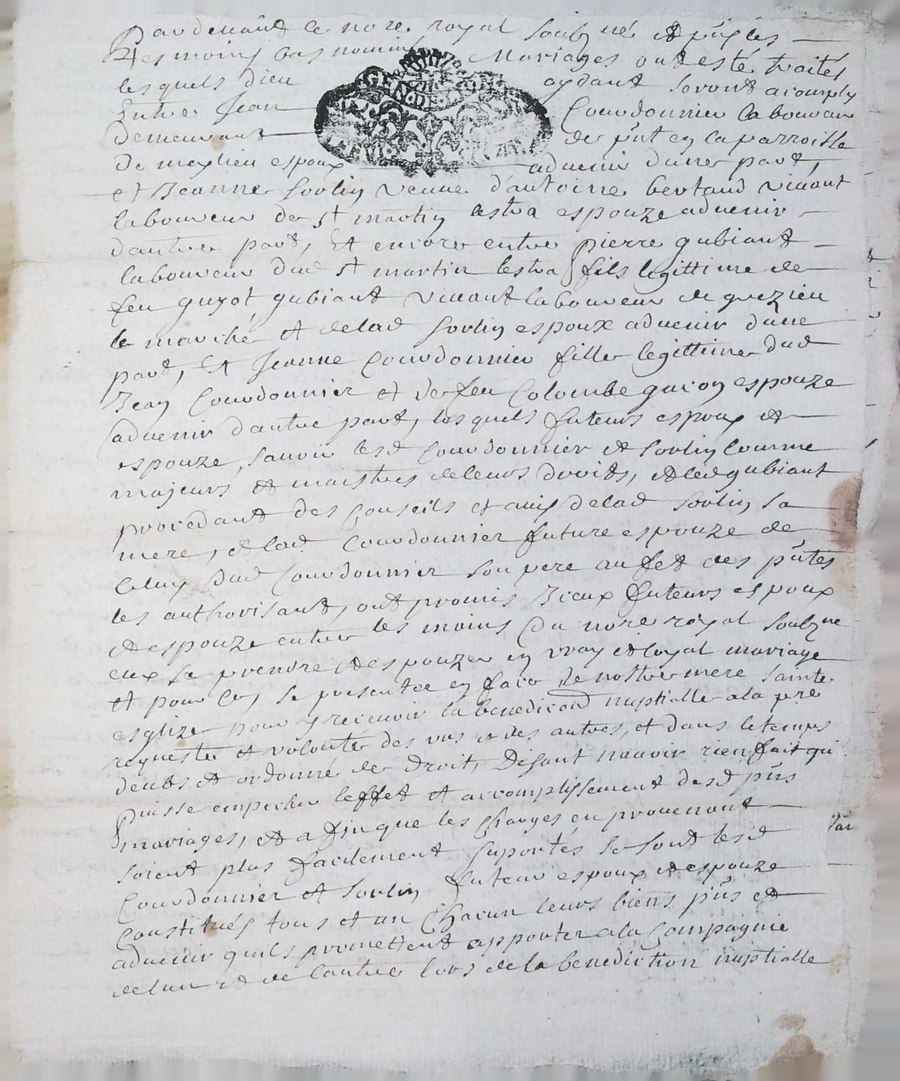 Pardevant le nore royal soubzné et pñts les
tesmoins bas nommés Mariages ont esté traités
lesquels dieu aydant seront acomplis
Entre Jean Courdonnier laboureur
demeurant de pñt en la parroisse
de meylieu espoux advenir dune part,
et Jeanne Sorlin veuve d'antoine bertaud vivant
laboureur de st martin lestra espouze advenir
dautre part, Et encore entre pierre gubiant
laboureur dud st martin lestra fils legittime de
feu guyot gubiant vivant laboureur de
le marché et delad Sorlin espoux advenir dune
part, Et Jeanne Courdonnier fille legittime dud
Jean Courdonnier et de feu Colombe guion espouze
advenir dautre part, lesquels futeurs espoux et
espouze, savoir lesd Courdonnier et Sorlin comme
majeurs et maistres de leurs droits, et led gubiant
procedant des Conseils et avis delad Sorlin sa
mere, et lad Courdonnier future espouze de
Celuy dud Courdonnier son pere au fet des pñtes
les authorisant, ont promis Iceux futeurs espoux
et espouze entre les mains du nore royal soubzne
eux se prendre et espouzer en vray et loyal mariage
et pour ce se presenter en face de nostre mere sainte
esglize pour y recevoir la benediction nuptialle a la pre
requeste et volonte des uns et des autres, et dans le temps
deubs et ordonné de droit, Disant navoir rien fait qui
puisse empecher leffet et accomplissement desd pñts
mariages, et afin que les charges en provenant
soient plus facilement suportés se sont lesd
Courdonnier et Sorlin futeur espoux et espouze
Constitués tous et un chacun leurs biens pñts et
advenir quils promettent apporter a la Compagnie
delun et de lautre lors de la benediction nuptialle